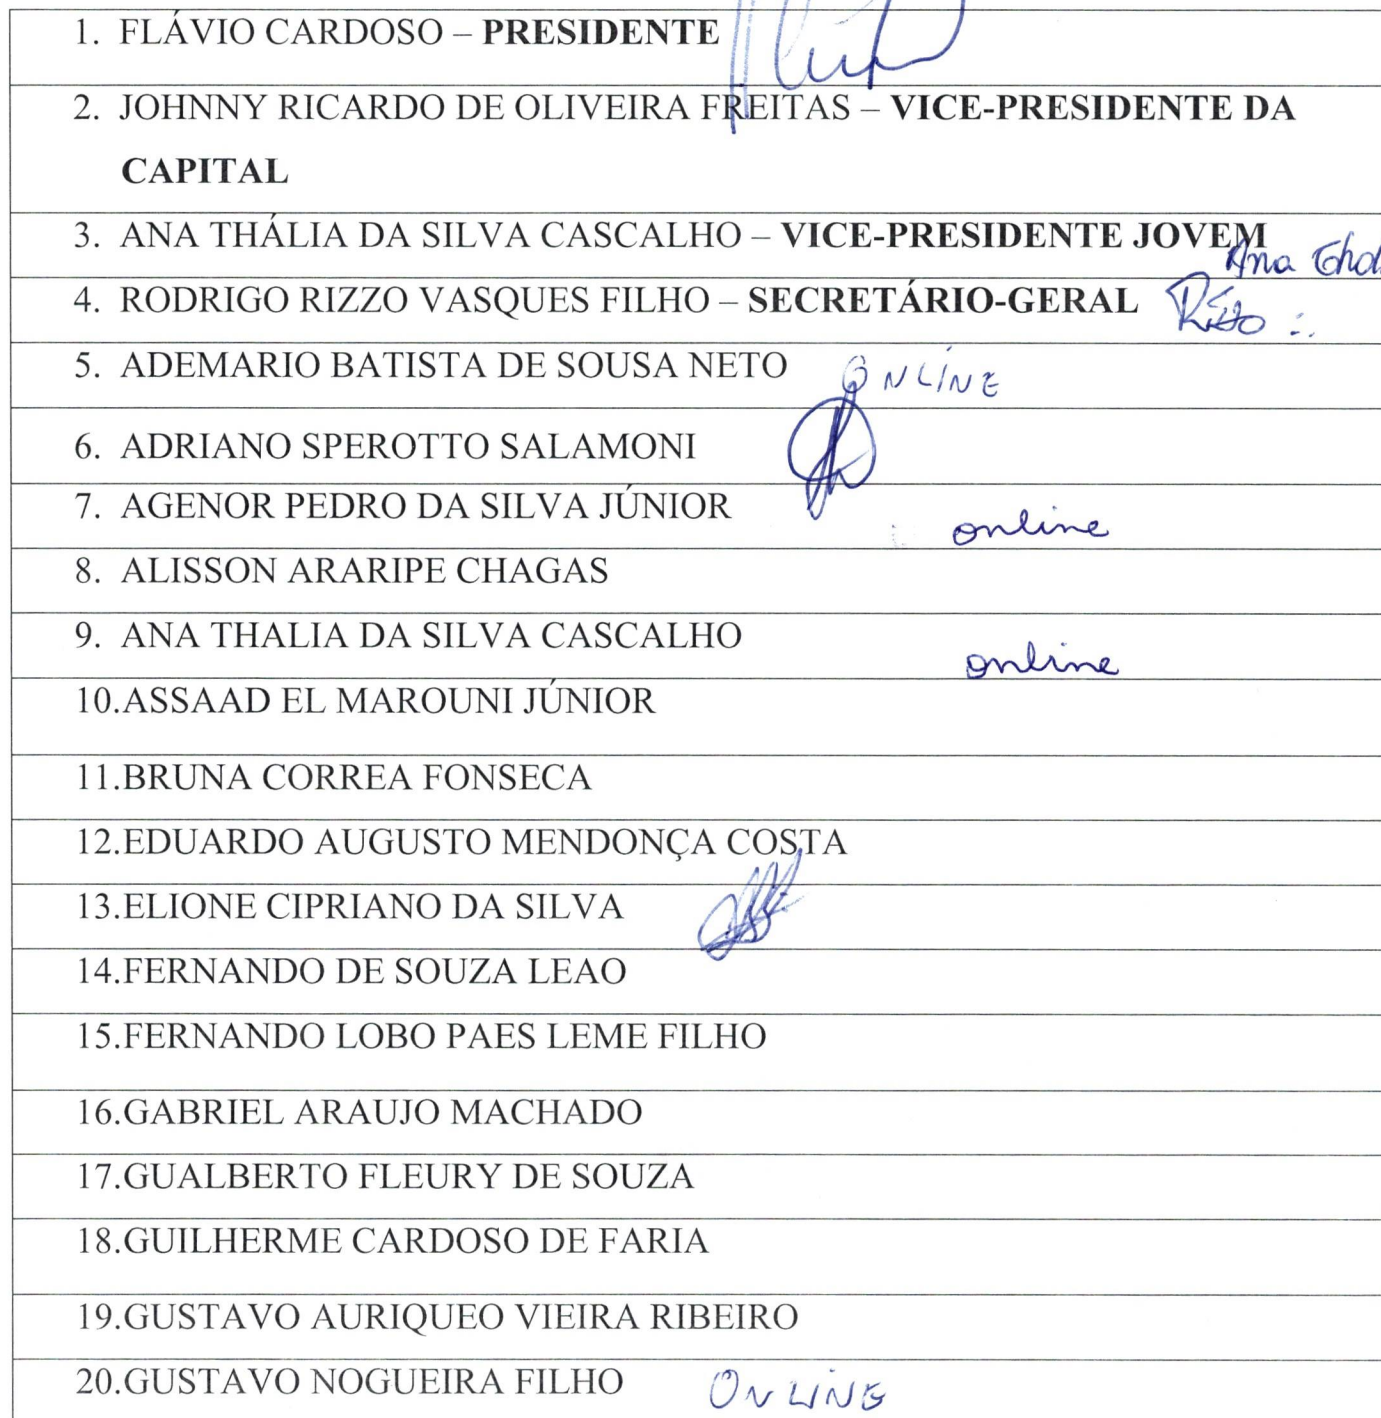 1. FLÁVIO CARDOSO – PRESIDENTE
2. JOHNNY RICARDO DE OLIVEIRA FREITAS – VICE-PRESIDENTE DA
CAPITAL
3. ANA THÁLIA DA SILVA CASCALHO – VICE-PRESIDENTE JOVEM
Ana
4. RODRIGO RIZZO VASQUES FILHO – SECRETÁRIO-GERAL
5. ADEMARIO BATISTA DE SOUSA NETO ONLINE
6. ADRIANO SPEROTTO SALAMONI
7. AGENOR PEDRO DA SILVA JÚNIOR online
8. ALISSON ARARIPE CHAGAS
9. ANA THALIA DA SILVA CASCALHO online
10.ASSAAD EL MAROUNI JÚNIOR
11.BRUNA CORREA FONSECA
12.EDUARDO AUGUSTO MENDONÇA COSTA
13.ELIONE CIPRIANO DA SILVA
14.FERNANDO DE SOUZA LEAO
15.FERNANDO LOBO PAES LEME FILHO
16.GABRIEL ARAUJO MACHADO
17.GUALBERTO FLEURY DE SOUZA
18.GUILHERME CARDOSO DE FARIA
19.GUSTAVO AURIQUEO VIEIRA RIBEIRO
20.GUSTAVO NOGUEIRA FILHO ONLINE